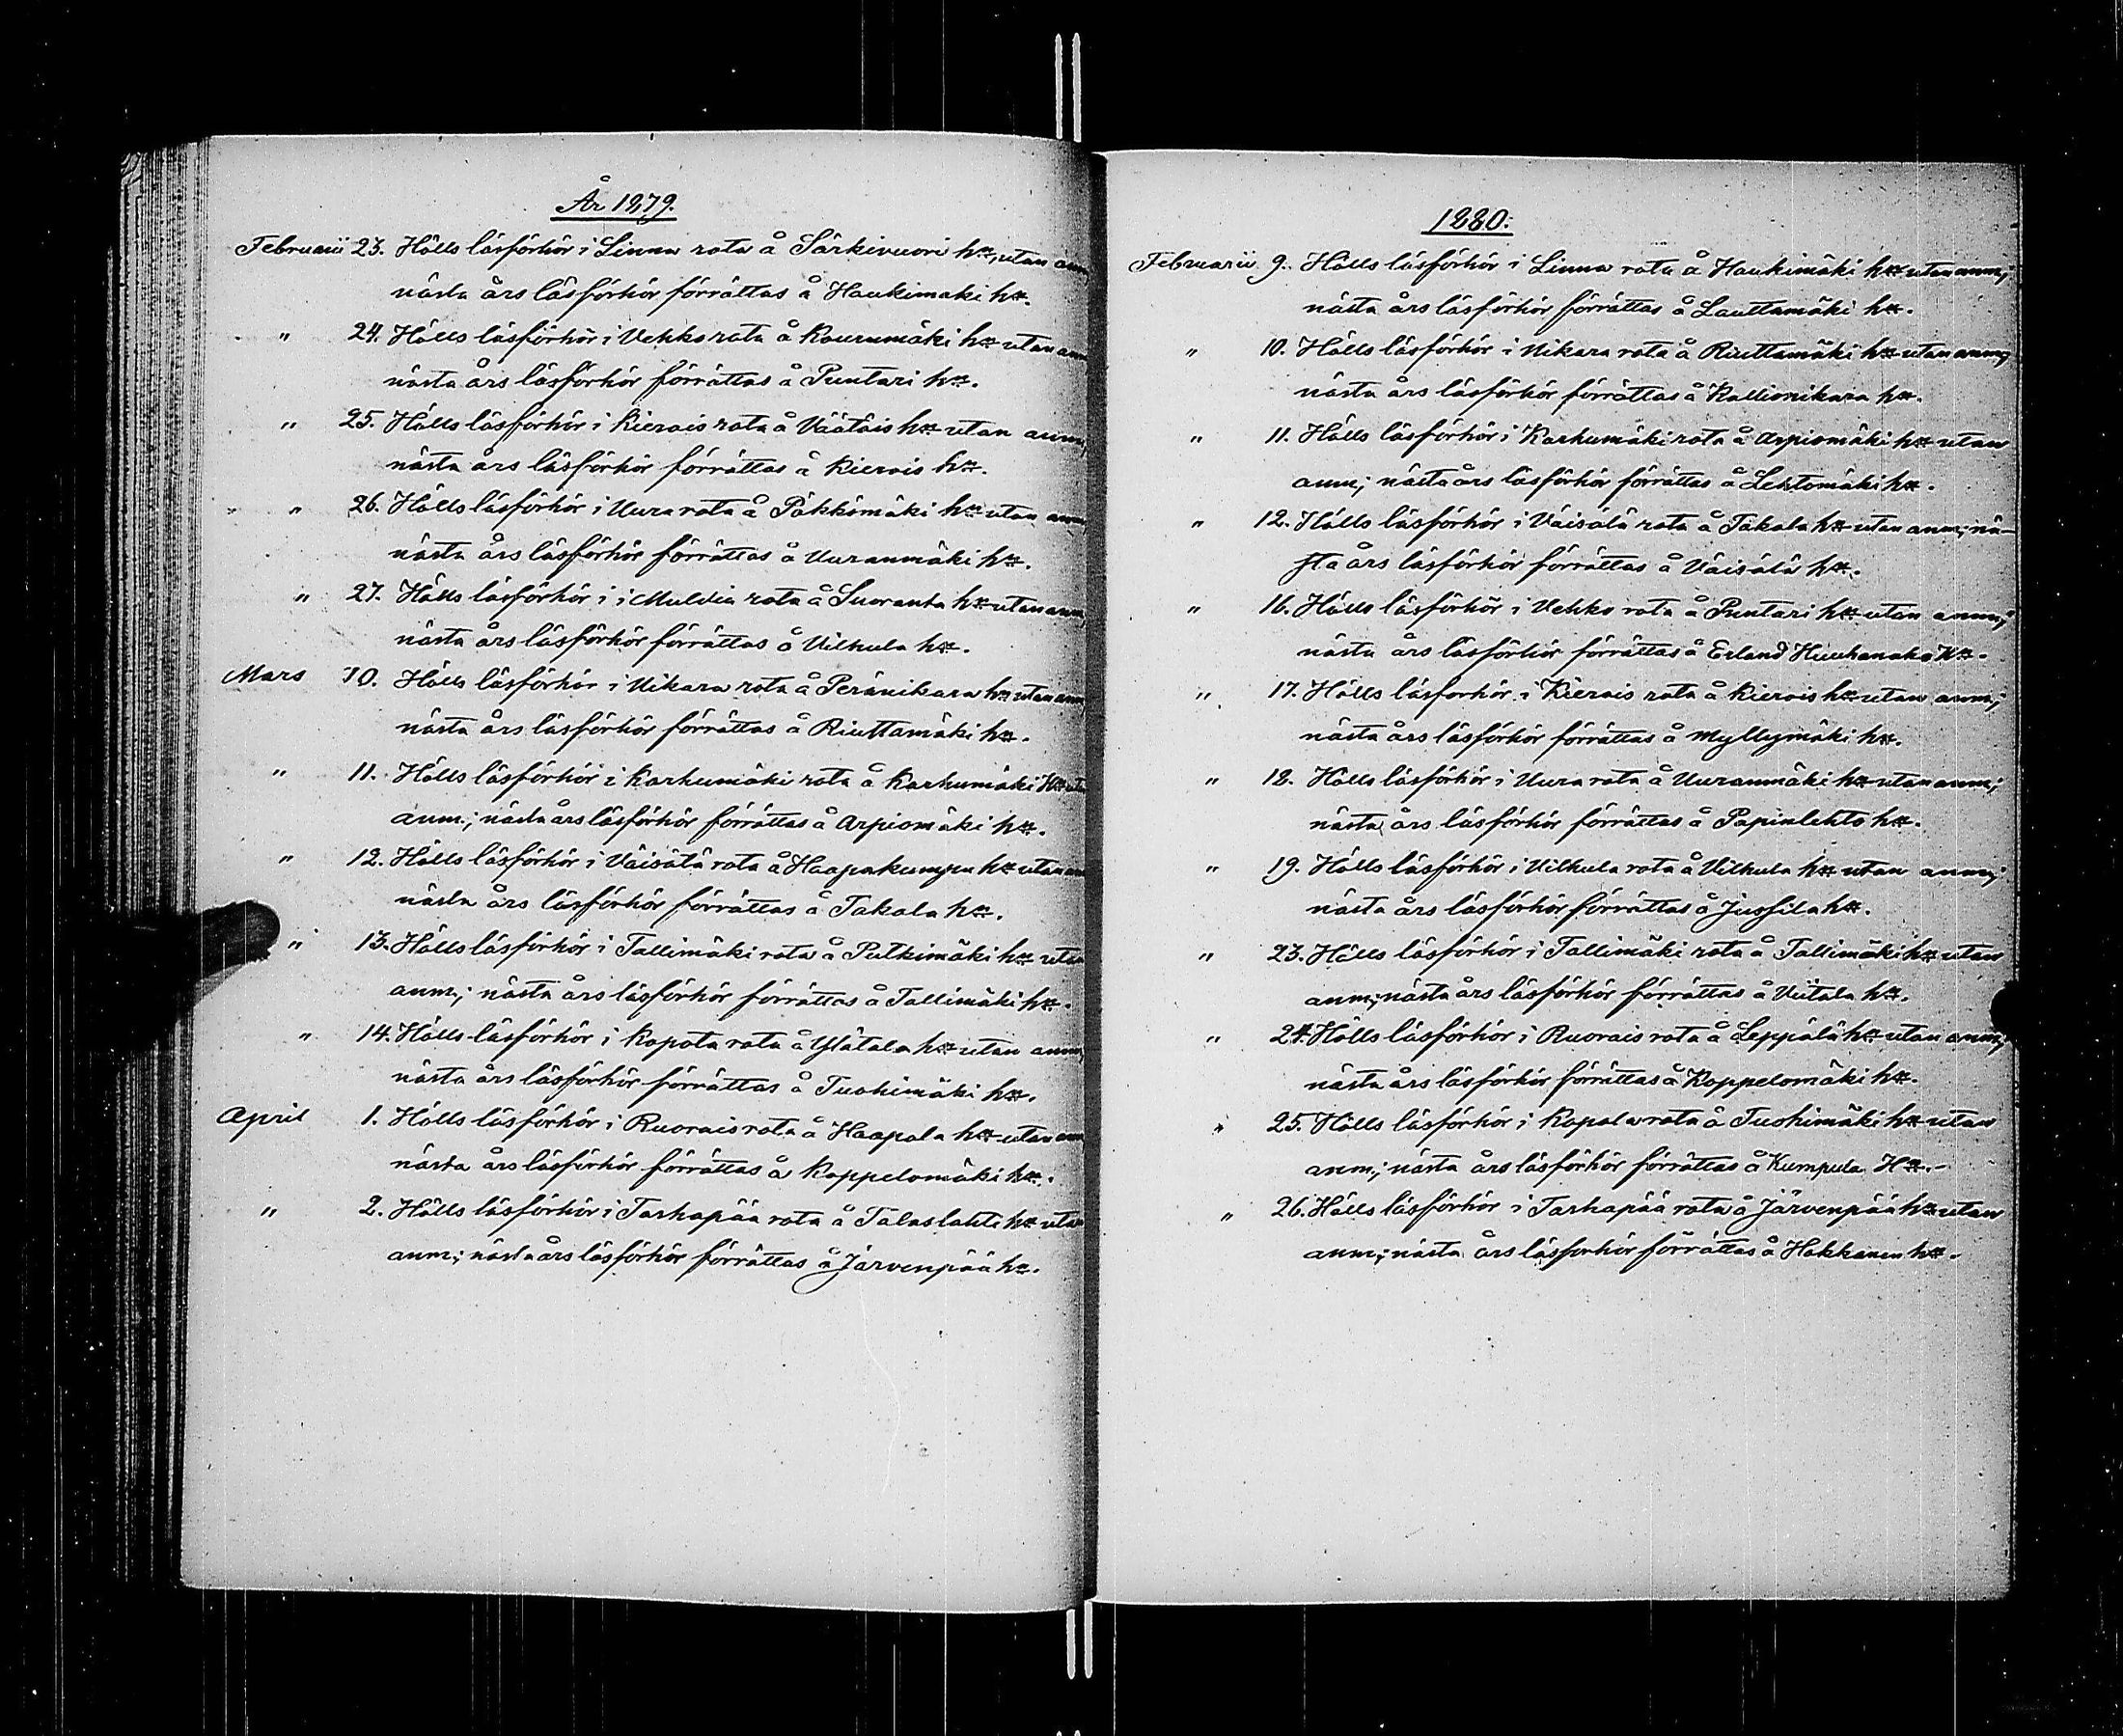 År 1879.
Februarii 23. Hölls läsförhör i Linna rota å Särkivuori hn, utan anm
nästa års läsförhör förrättas å Haukimäki hn.
" 24. Hölls läsförhör i Vehko rota å Kourumäki hn utan anm
nästa års läsförhör förrättas å Puntari hn.
" 25. Hölls läsförhör i Kierois rota å Väätäis hn utan anm;
nästa års läsförhör förrättas å Kierois hn.
" 26. Hölls läsförhör i Uura rota å Pökkömäki hn utan anm
nästa års läsförhör förrättas å Uuranmäki hn.
" 27. Hölls läsförhör i i Muldia rota å Suoranta hn utan anm;
nästa års läsförhör förrättas å Vilkula hn.
Mars 10. Hölls läsförhör i Nikara rota å Peränikara hn utan anm;
nästa års läsförhör förrättas å Riuttamäki hn.
" 11. Hölls läsförhör i Karhumäki rota å Karhumäki Hn uta
anm.; nästa års läsförhör förrättas å Arpiomäki hn.
" 12. Hölls läsförhör i Väisälä rota å Haapakumpu hn utan an
nästa års läsförhör förrättas å Takala hn.
" 13. Hölls läsförhör i Tallimäki rota å Putkimäki hn utan
anm; nästa års läsförhör förrättas å Tallimäki hn.
" 14. Hölls läsförhör i Kopola rota å Ylätalo hn utan anm;
nästa års läsförhör förrättas å Tuohimäki hn.
April 1. Hölls läsförhör i Ruorais rota å Haapala hn utan anm
nästa års läsförhör förrättas å Koppelomäki hn.
" 2. Hölls läsförhör i Tarhapää rota å Talaslahti hn utan
anm; nästa års läsförhör förrättas å Järvenpää hn.
1880.
Februarii 9. Hölls läsförhör i Linna rota å Haukimäki hn utan anm;
nästa års läsförhör förrättas å Lauttamäki hn.
" 10. Hölls läsförhör i Nikara rota å Riuttamäki hn utan anm;
nästa års läsförhör förrättas å Kallionikara hn.
" 11. Hölls läsförhör i Karhumäki rota å Arpiomäki hn utan
anm; nästa års läsförhör förrättas å Lehtomäki hn.
" 12. Hölls läsförhör i Väisälä rota å Takala hn utan anm; nä-
sta års läsförhör förrättas å Väisälä hn.
" 16. Hölls läsförhör i Vehko rota å Puntari hn utan anm;
nästa års läsförhör förrättas å Erland Huuhanaho hn.
" 17. Hölls läsförhör i Kierois rota å Kierois hn utan anm;
nästa års läsförhör förrättas å Myllymäki hn.
" 18. Hölls läsförhör i Uura rota å Uuranmäki hn utan anm;
nästa års läsförhör förrättas å Papinlehto hn.
" 19. Hölls läsförhör i Vilkula rota å Vilkula hn utan anm;
nästa års läsförhör förrättas å Jussila hn.
" 23. Hölls läsförhör i Tallimäki rota å Tallimäki hn utan
anm; nästa års läsförhör förrättas å Viitala hn.
" 24. Hölls läsförhör i Ruorais rota å Leppälä hn utan anm;
nästa års läsförhör förrättas å Koppelomäki hn.
" 25. Hölls läsförhör i Kopola rota å Tuohimäki hn utan
anm; nästa års läsförhör förrättas å Kumpula Hn.-
" 26. Hölls läsförhör i Tarhapää rota å Järvenpää hn utan
anm; nästa års läsförhör förrättas å Hakkanen hn.